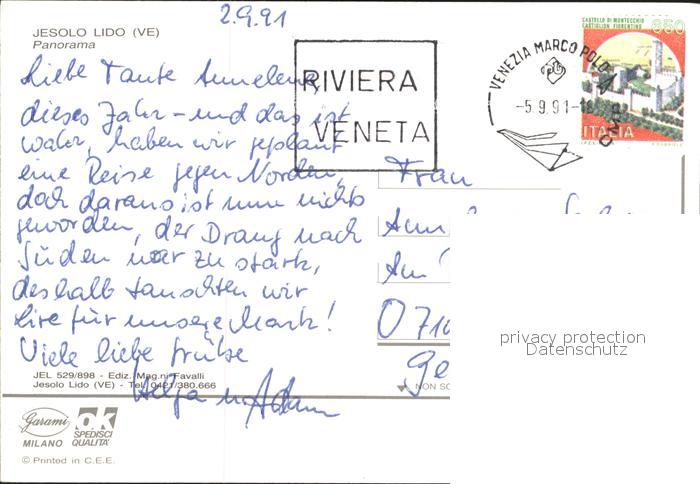 2.9.91
JESOLO LIDO (VE)
Panorama
Liebe Tante Annelene,
dieses Jahr - und das ist
wahr, haben wir geplant
eine Reise gegen Norden,
doch daraus ist nun nichts
geworden, der Drang nach
Süden war zu stark,
deshalb tauschten wir
Lire für unsere Mark!
Viele liebe Grüße
Helga u. Adam
RIVIERA
VENETA
VENEZIA MARCO POLO
-5.9.91-18
CASTELLO DI MONTECCHIO
CASTIGLION FIORENTINO
650
ITALIA
Frau
Ann
Am
O 710
Ge
privacy protection
Datenschutz
JEL 529/898 - Ediz. Mag.ni Favalli
Jesolo Lido (VE) - Tel. 0421/380.666
NON SC
Garami
MILANO
ok
SPEDISCI
QUALITA'
© Printed in C.E.E.